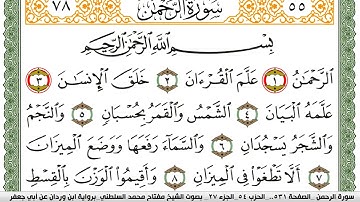 ٥٥ سورة الرحمن ٧٨
بسم الله الرحمن الرحيم
الرَّحْمَٰنُ ١ عَلَّمَ الْقُرَانَ ٢ خَلَقَ الْإِنسَٰنَ ٣
عَلَّمَهُ الْبَيَانَ ٤ الشَّمْسُ وَالْقَمَرُ بِحُسْبَانٍ ٥ وَالنَّجْمُ
وَالشَّجَرُ يَسْجُدَانِ ٦ وَالسَّمَاءَ رَفَعَهَا وَوَضَعَ الْمِيزَانَ
٧ أَلَّا تَطْغَوْا فِي الْمِيزَانِ ٨ وَأَقِيمُوا الْوَزْنَ بِالْقِسْطِ
سورة الرحمن .. الصفحة ٥٣١.. الحزب ٥٤ ..الجزء ٢٧ .. بصوت الشيخ مفتاح محمد السلطني ..برواية ابن وردان عن أبي جعفر